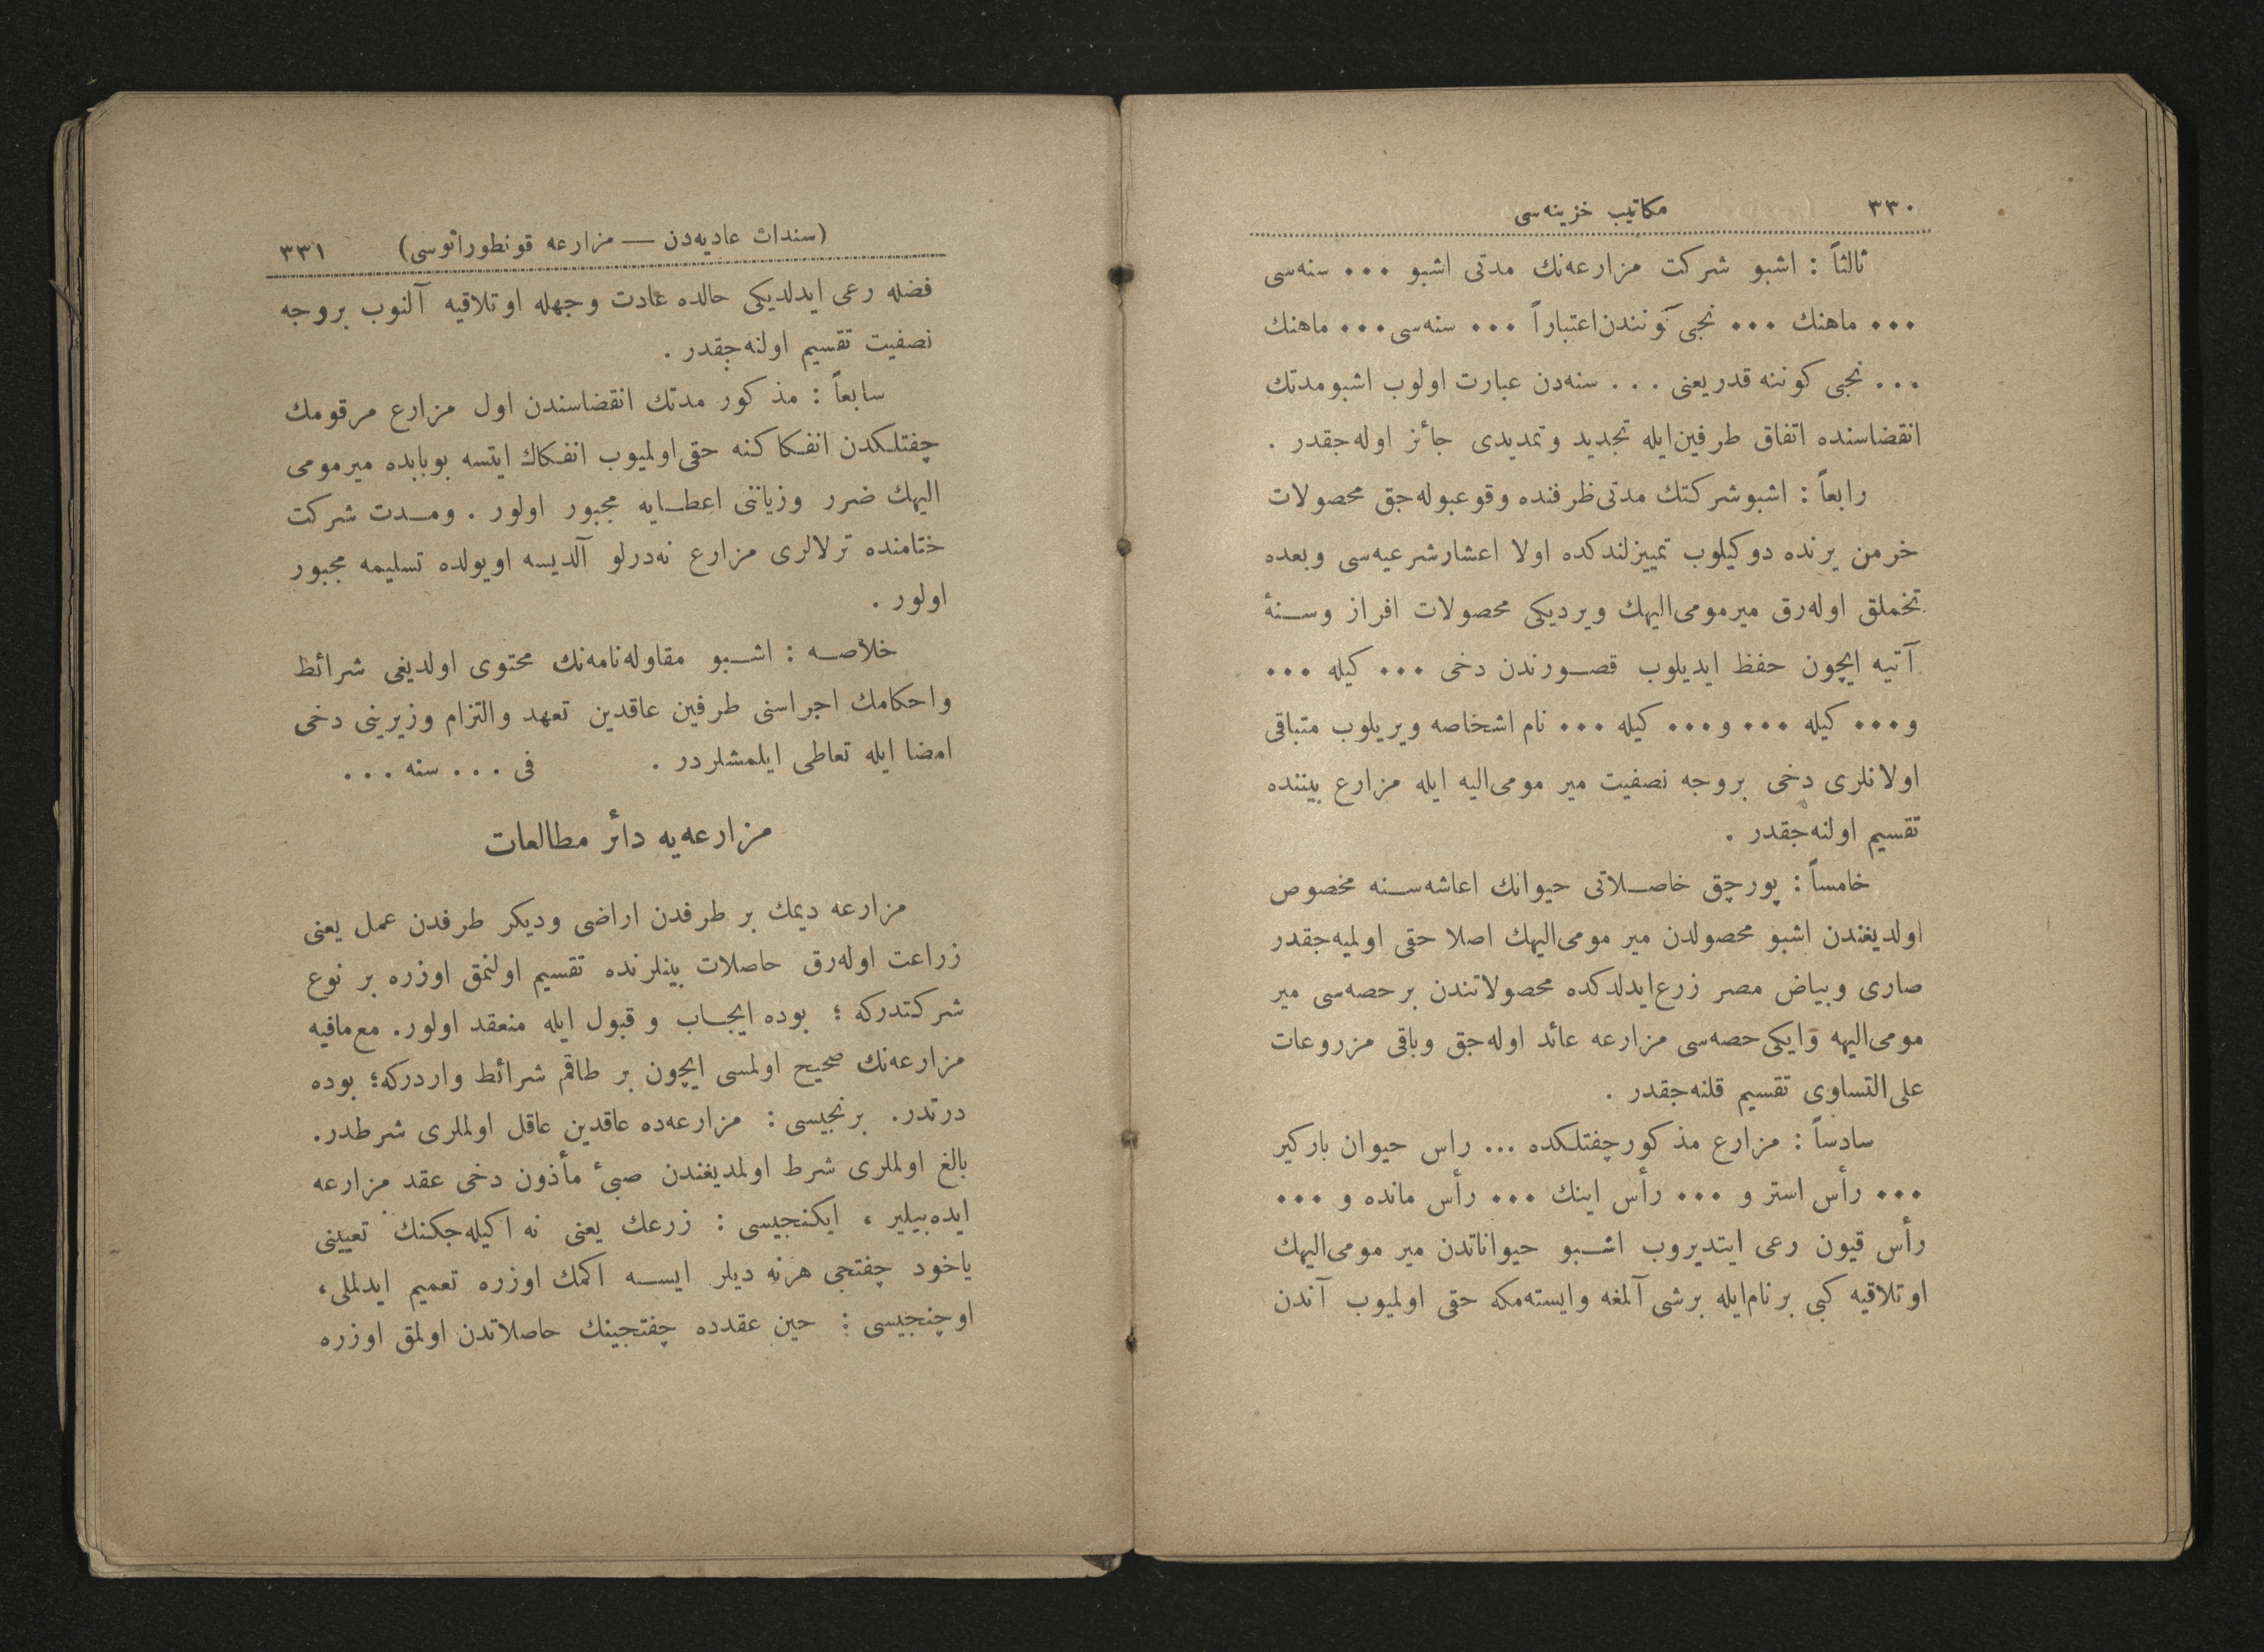 ٣٣٠ مكاتيب خزينه‌سى
ثالثاً : اشبو شركت مزارعه‌نك مدتى اشبو ... سنه‌سى
... ماهنك ... نجى كونندن اعتباراً ... سنه‌سى ... ماهنك
... نجى كوننه قدر يعنى ... سنه‌دن عبارت اولوب اشبو مدتك
انقضاسنده اتفاق طرفين ايله تجديد وتمديدى جائز اوله‌جقدر .
رابعاً : اشبو شركتك مدتى ظرفنده وقوعبوله‌جق محصولات
خرمن يرنده دوكيلوب تمييزلندكده اولا اعشار شرعيه‌سى وبعده
تخملق اوله‌رق ميرمومى‌اليهك ويرديكى محصولات افراز وسنۀ
آتيه ايچون حفظ ايديلوب قصورندن دخى ... كيله ...
و ... كيله ... و ... كيله ... نام اشخاصه ويريلوب متباقى
اولانلرى دخى بروجه نصفيت مير مومى‌اليه ايله مزارع بيننده
تقسيم اولنه‌جقدر .
خامساً : پورچق خاصلاتى حيوانك اعاشه‌سنه مخصوص
اولديغندن اشبو محصولدن مير مومى‌اليهك اصلا حقى اولميه‌جقدر
صارى وبياض مصر زرع ايدلدكده محصولاتندن برحصه‌سى مير
مومى‌اليهه وايكى حصه‌سى مزارعه عائد اوله‌جق وباقى مزروعات
على‌التساوى تقسيم قلنه‌جقدر .
سادساً : مزارع مذكور چفتلكده ... راس حيوان باركير
... رأس استر و ... رأس اينك ... رأس مانده و ...
رأس قيون رعى ايتديروب اشبو حيواناتدن مير مومى‌اليهك
اوتلاقيه كبى برنام ايله برشى آلمغه وايسته‌مكه حقى اولميوب آندن
(سندات عاديه‌دن — مزارعه قونطوراتوسى) ٣٣١
فضله رعى ايدلديكى حالده عادت وجهله اوتلاقيه آلنوب بروجه
نصفيت تقسيم اولنه‌جقدر .
سابعاً : مذكور مدتك انقضاسندن اول مزارع مرقومك
چفتلكدن انفكاكنه حقى اولميوب انفكاك ايتسه بوبابده ميرمومى
اليهك ضرر وزياننى اعطايه مجبور اولور . ومدت شركت
ختامنده ترلالرى مزارع نه‌درلو آلديسه اويولده تسليمه مجبور
اولور .
خلاصه : اشبو مقاوله‌نامه‌نك محتوى اولديغى شرائط
واحكامك اجراسنى طرفين عاقدين تعهد والتزام وزيرينى دخى
امضا ايله تعاطى ايلمشلردر . فى ... سنه ...
مزارعه‌يه دائر مطالعات
مزارعه ديمك بر طرفدن اراضى وديكر طرفدن عمل يعنى
زراعت اوله‌رق حاصلات بينلرنده تقسيم اولنمق اوزره بر نوع
شركتدركه ؛ بوده ايجاب و قبول ايله منعقد اولور. مع‌مافيه
مزارعه‌نك صحيح اولمسى ايچون بر طاقم شرائط واردركه؛ بوده
درتدر. برنجيسى : مزارعه‌ده عاقدين عاقل اولملرى شرطدر.
بالغ اولملرى شرط اولمديغندن صبئ مأذون دخى عقد مزارعه
ايده‌بيلير ، ايكنجيسى : زرعك يعنى نه اكيله‌جكنك تعيينى
ياخود چفتجى هرنه ديلر ايسه اكمك اوزره تعميم ايدلملى،
اوچنجيسى : حين عقدده چفتجينك حاصلاتدن اولمق اوزره